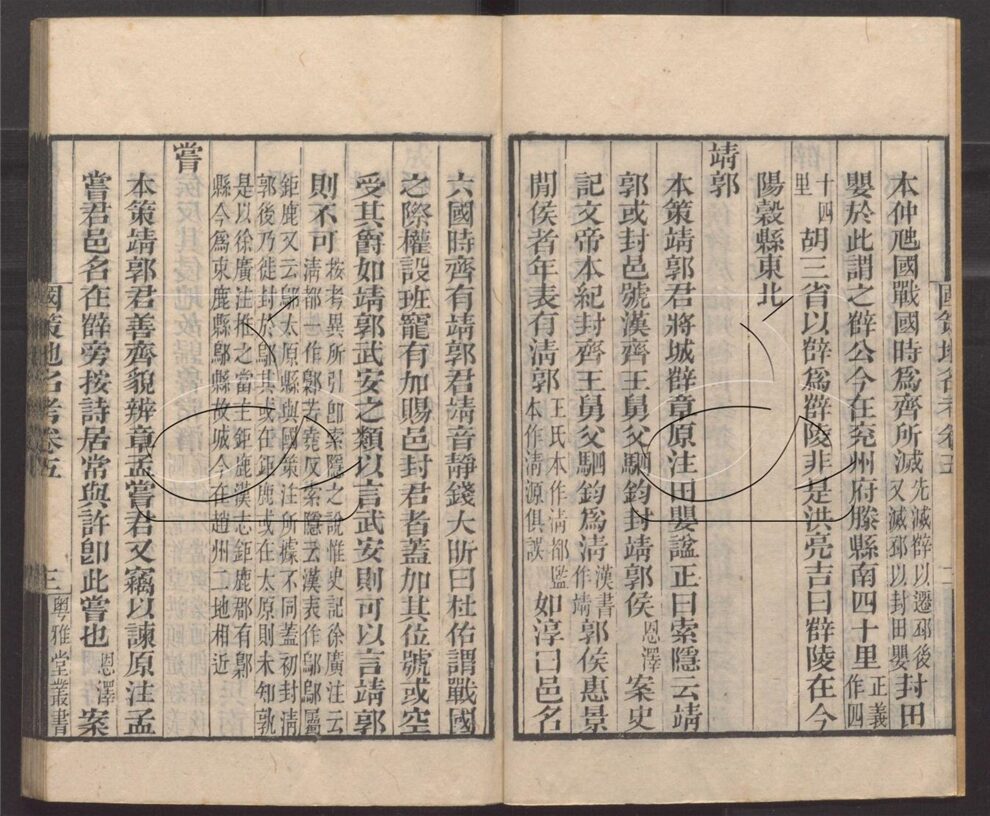 本仲虺國戰國時爲齊所滅先滅薛以遷邳後又滅邳以封田嬰封田
嬰於此謂之薛公今在兖州府滕縣南四十里正義作四
十四里胡三省以薛爲薛陵非是洪亮吉曰薛陵在今
陽穀縣東北
靖郭
本策靖郭君將城薛章原注田嬰諡正曰索隱云靖
郭或封邑號漢齊王舅父駟鈞封靖郭侯恩澤案史
記文帝本紀封齊王舅父駟鈞爲淸漢書作靖郭侯惠景
閒侯者年表有淸郭王氏本作淸都監本作淸源俱誤如淳曰邑名
六國時齊有靖郭君靖音靜錢大昕曰杜佑謂戰國
之際權設班寵有加賜邑封君者蓋加其位號或空
受其爵如靖郭武安之類以言武安則可以言靖郭
則不可按考異所引卽索隱之說惟史記徐廣注云淸都一作鄡苦堯反索隱云漢表作鄔鄔屬
鉅鹿又云鄔太原縣與國策注所據不同蓋初封淸郭後乃徙封於鄔其或在鉅鹿或在太原則未知孰
是以徐廣注推之當主鉅鹿漢志鉅鹿郡有鄡縣今爲束鹿縣鄔縣故城今在趙州二地相近
嘗
本策靖郭君善齊貌辨章孟嘗君又竊以諫原注孟
嘗君邑名在薛旁按詩居常與許卽此嘗也恩澤案
國策地名考卷五 三 粤雅堂叢書